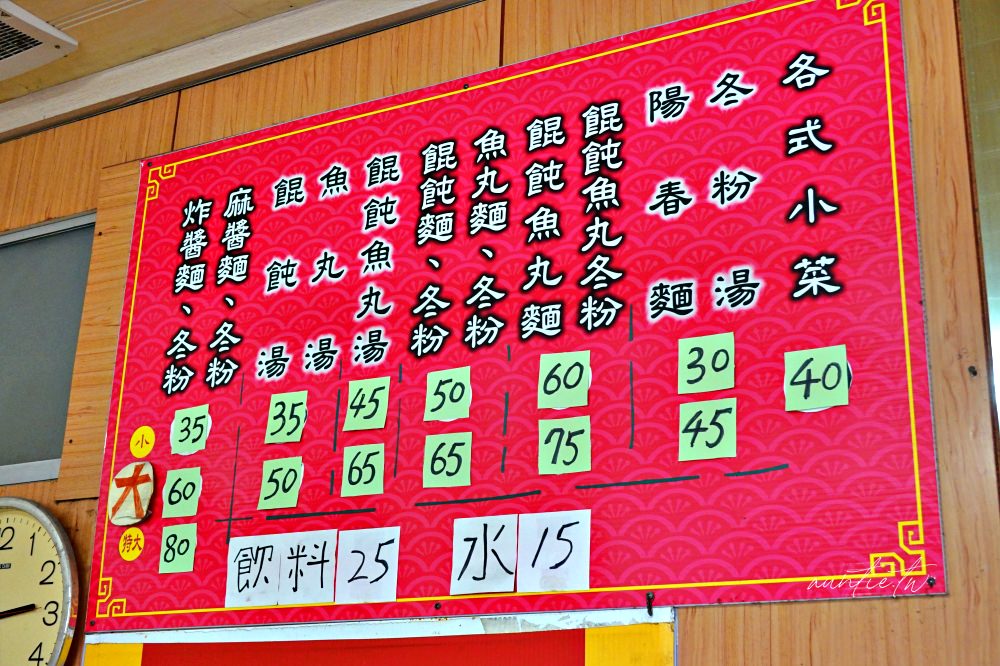 各式小菜
冬粉湯
陽春麵
餛飩魚丸冬粉
餛飩魚丸麵
魚丸麵、冬粉
餛飩麵、冬粉
餛飩魚丸湯
魚丸湯
餛飩湯
麻醬麵、冬粉
炸醬麵、冬粉
小 35 35 45 50 60 30 40
大 60 50 65 65 75 45
特大 80
飲料 25 水 15
auntie.tw
12
1
2
3
4